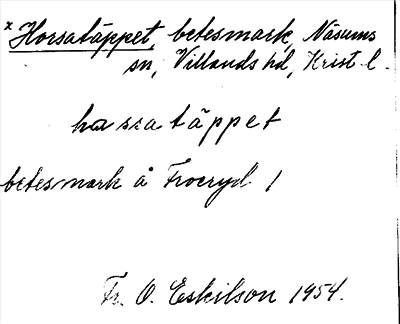 x Horsatäppet, betesmark, Näsums
sn, Villands hd, Krist. l.
hassatäppet
betesmark å Froeryd 1
Fr. O. Eskilson 1954.